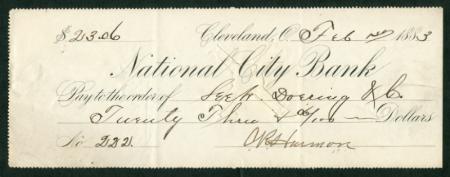 $ 23.06 Cleveland, O. Feb 1883
National City Bank
Pay to the order of Doering & Co.
Twenty Three & 06/100 Dollars
No 222.
Harmon